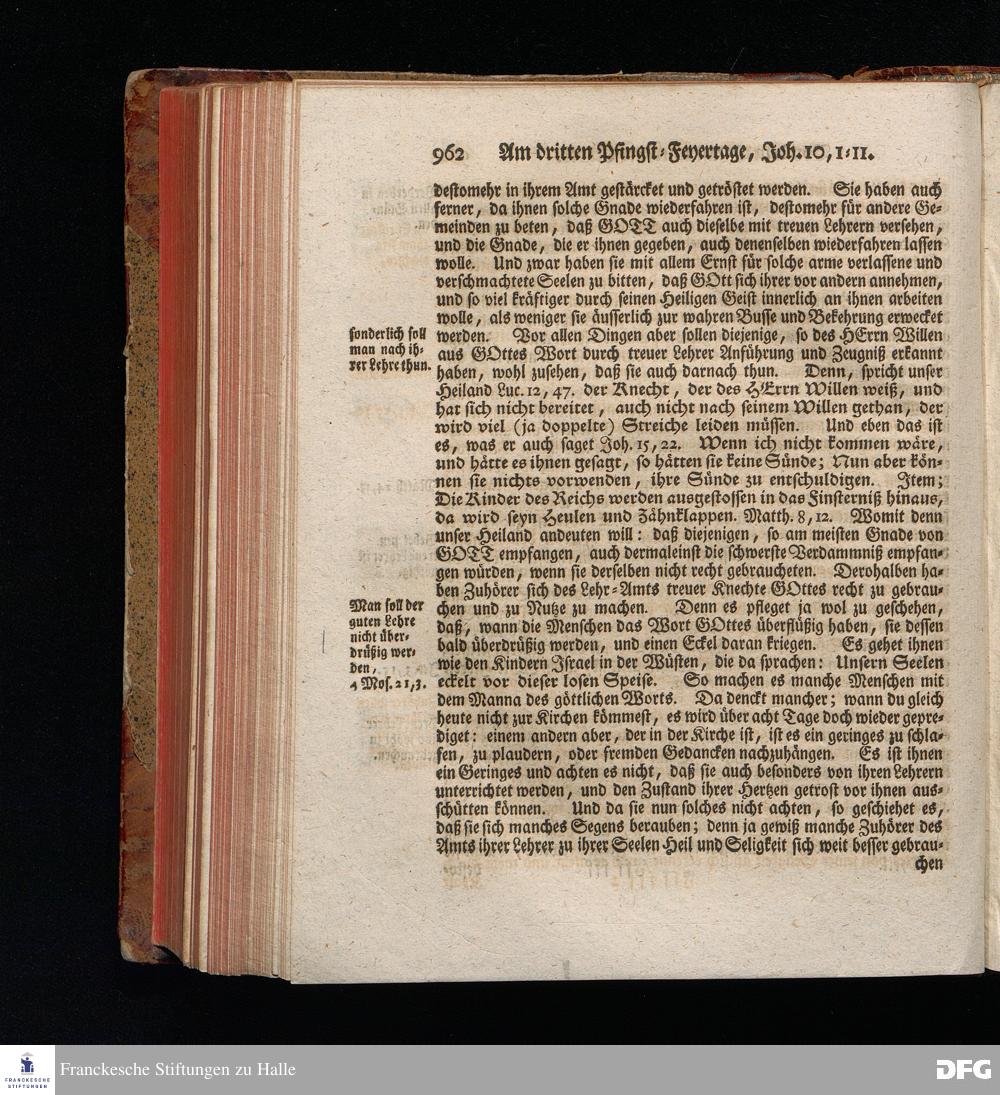 962 Am dritten Pfingst-Feyertage, Joh. 10, 1-11.
destomehr in ihrem Amt gestärcket und getröstet werden. Sie haben auch
ferner, da ihnen solche Gnade wiederfahren ist, destomehr für andere Ge-
meinden zu beten, daß GOTT auch dieselbe mit treuen Lehrern versehen,
und die Gnade, die er ihnen gegeben, auch denenselben wiederfahren lassen
wolle. Und zwar haben sie mit allem Ernst für solche arme verlassene und
verschmachtete Seelen zu bitten, daß GOtt sich ihrer vor andern annehmen,
und so viel kräftiger durch seinen Heiligen Geist innerlich an ihnen arbeiten
wolle, als weniger sie äusserlich zur wahren Busse und Bekehrung erwecket
werden. Vor allen Dingen aber sollen diejenige, so des HErrn Willen
aus GOttes Wort durch treuer Lehrer Anführung und Zeugniß erkannt
haben, wohl zusehen, daß sie auch darnach thun. Denn, spricht unser
Heiland Luc. 12, 47. der Knecht, der des HErrn Willen weiß, und
hat sich nicht bereitet, auch nicht nach seinem Willen gethan, der
wird viel (ja doppelte) Streiche leiden müssen. Und eben das ist
es, was er auch saget Joh. 15, 22. Wenn ich nicht kommen wäre,
und hätte es ihnen gesagt, so hätten sie keine Sünde; Nun aber kön-
nen sie nichts vorwenden, ihre Sünde zu entschuldigen. Item;
Die Kinder des Reichs werden ausgestossen in das Finsterniß hinaus,
da wird seyn Heulen und Zähnklappen. Matth. 8, 12. Womit denn
unser Heiland andeuten will: daß diejenigen, so am meisten Gnade von
GOTT empfangen, auch dermaleinst die schwerste Verdammniß empfan-
gen würden, wenn sie derselben nicht recht gebraucheten. Derohalben ha-
ben Zuhörer sich des Lehr-Amts treuer Knechte GOttes recht zu gebrau-
chen und zu Nutze zu machen. Denn es pfleget ja wol zu geschehen,
daß, wann die Menschen das Wort GOttes überflüßig haben, sie dessen
bald überdrüßig werden, und einen Eckel daran kriegen. Es gehet ihnen
wie den Kindern Israel in der Wüsten, die da sprachen: Unsern Seelen
eckelt vor dieser losen Speise. So machen es manche Menschen mit
dem Manna des göttlichen Worts. Da denckt mancher; wann du gleich
heute nicht zur Kirchen kömmest, es wird über acht Tage doch wieder gepre-
diget: einem andern aber, der in der Kirche ist, ist es ein geringes zu schla-
fen, zu plaudern, oder fremden Gedancken nachzuhängen. Es ist ihnen
ein Geringes und achten es nicht, daß sie auch besonders von ihren Lehrern
unterrichtet werden, und den Zustand ihrer Hertzen getrost vor ihnen aus-
schütten können. Und da sie nun solches nicht achten, so geschiehet es,
daß sie sich manches Segens berauben; denn ja gewiß manche Zuhörer des
Amts ihrer Lehrer zu ihrer Seelen Heil und Seligkeit sich weit besser gebrau-
chen
sonderlich soll
man nach ih-
rer Lehre thun.
Man soll der
guten Lehre
nicht über-
drüßig wer-
den,
4 Mos. 21, 5.
FRANCKESCHE
STIFTUNGEN
Franckesche Stiftungen zu Halle
DFG